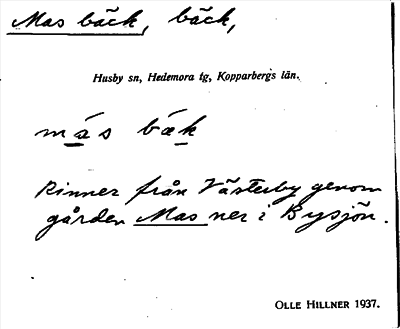 Mas bäck, bäck,
Husby sn, Hedemora tg, Kopparbergs län.
más bæk
Rinner från Västerby genom
gården Mas ner i Bysjön.
OLLE HILLNER 1937.